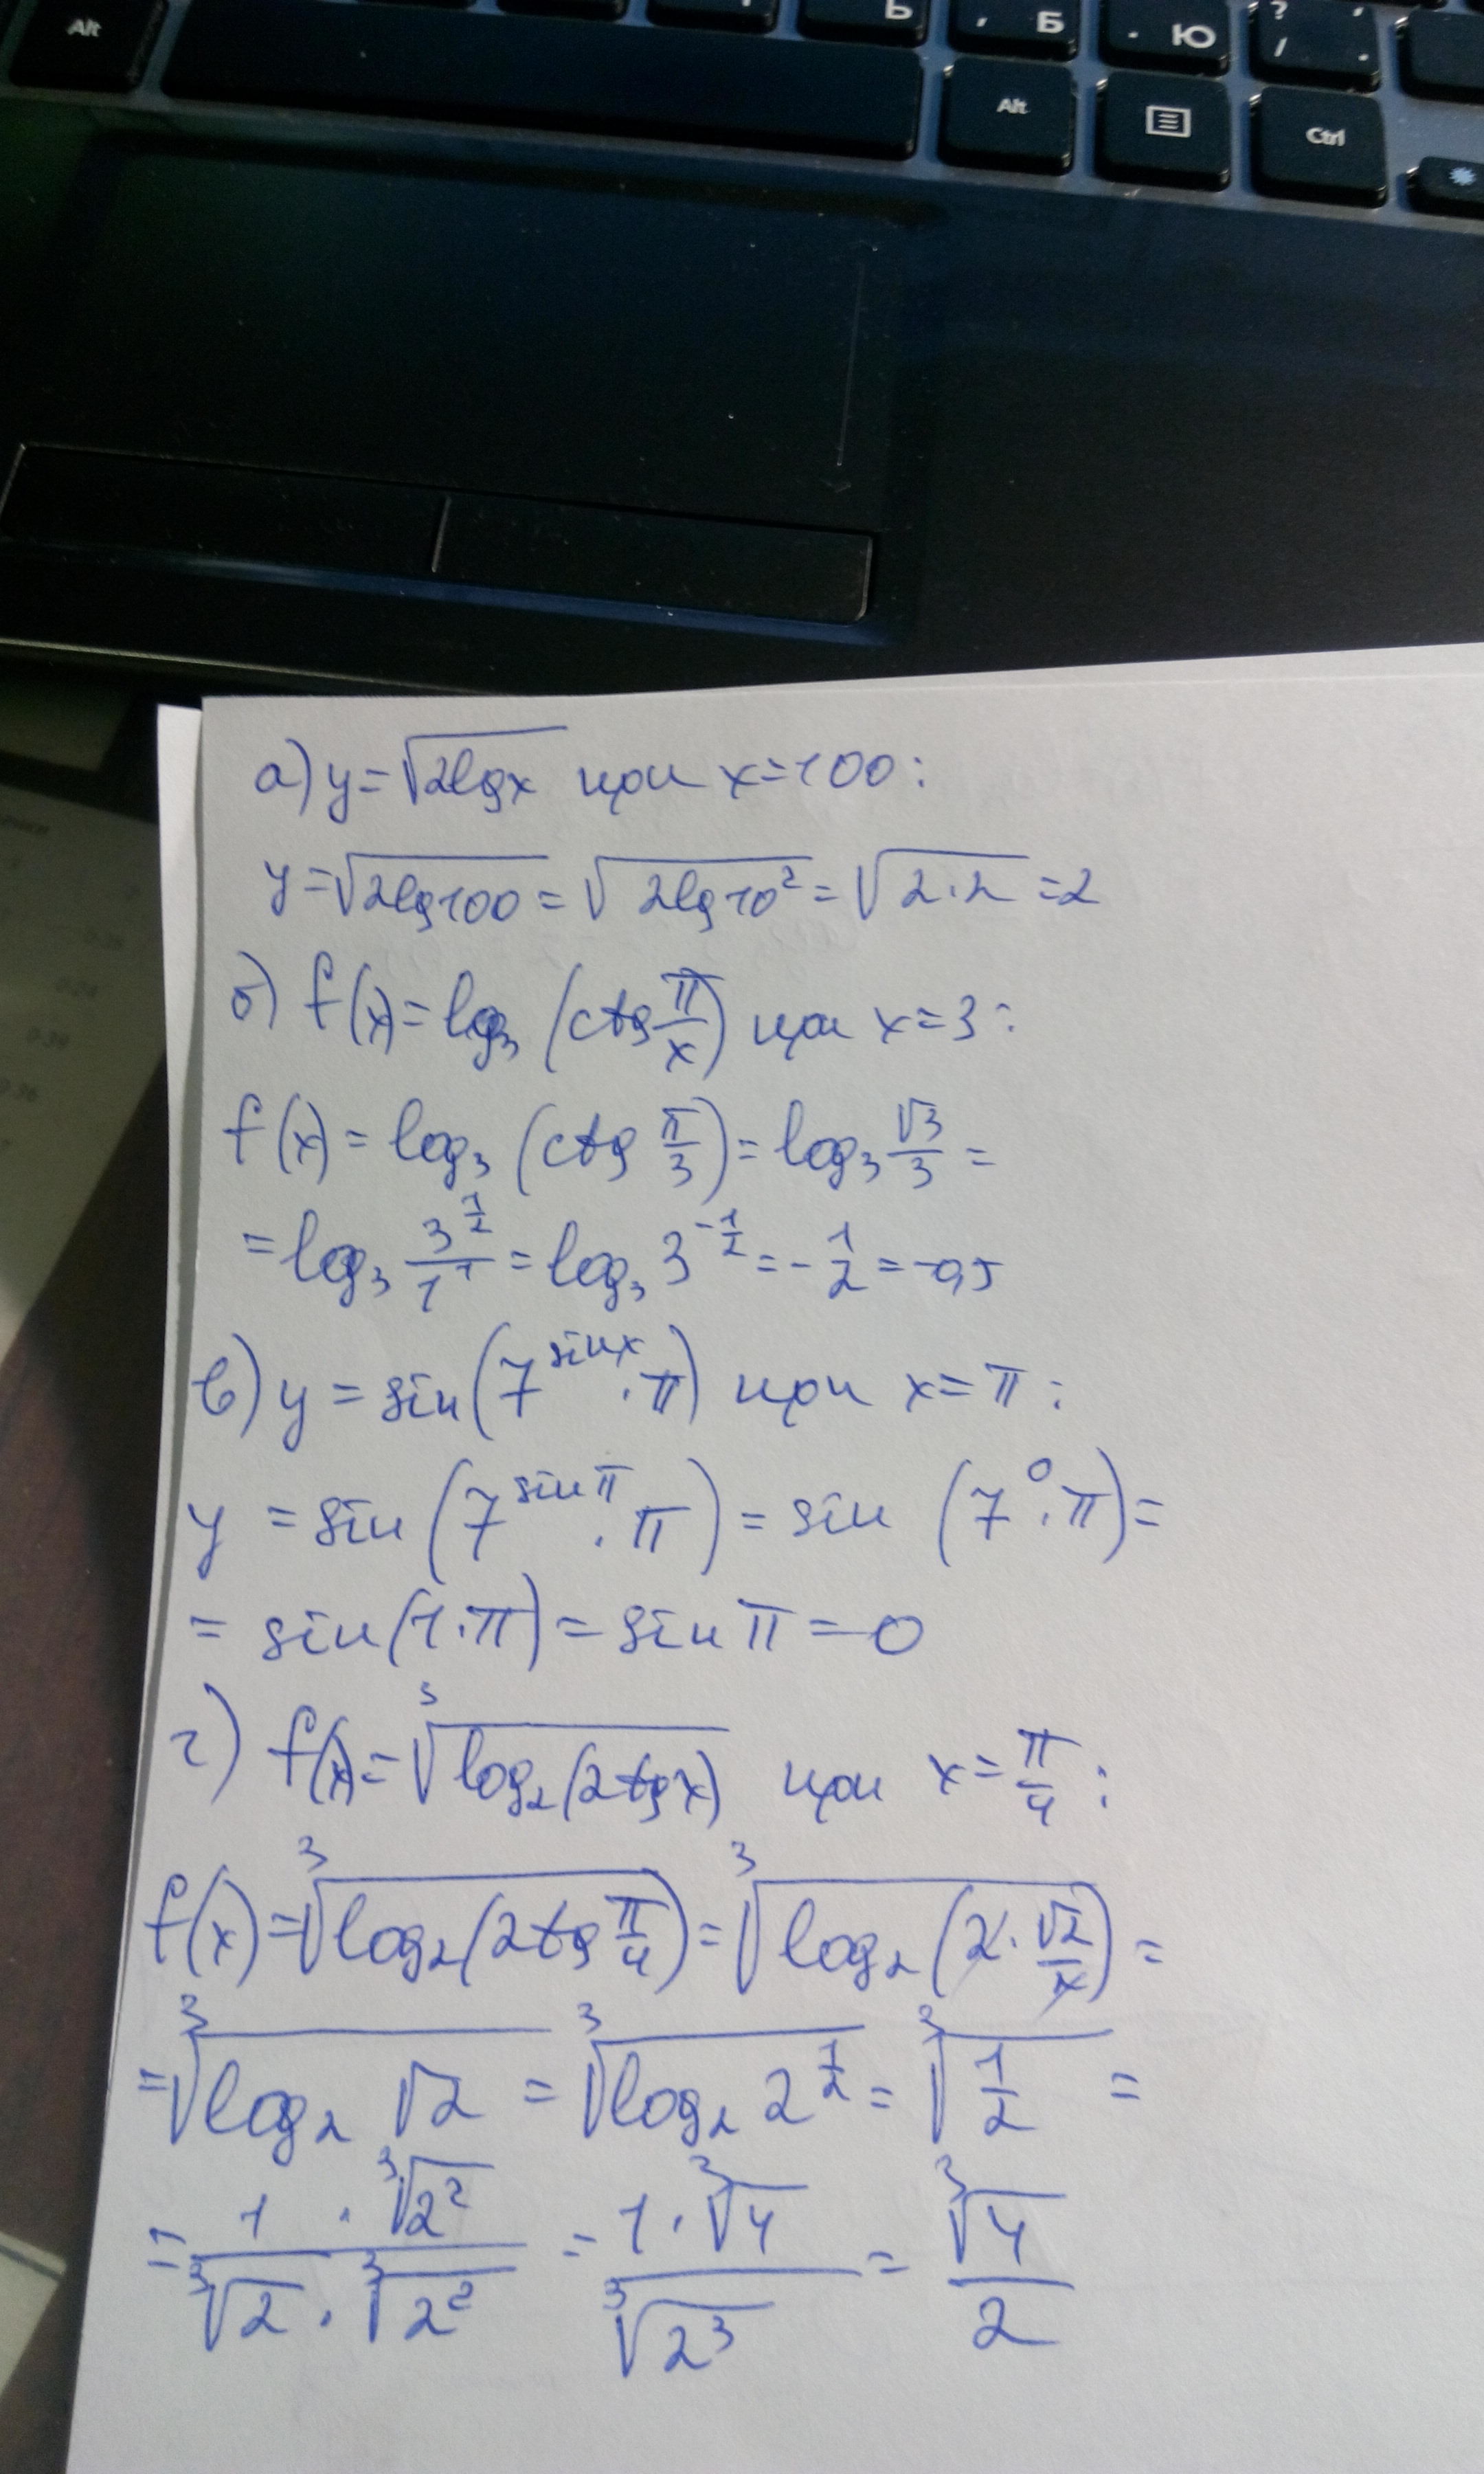 Alt Ь , Б . Ю ? / , .
Alt Ctrl
а) y=√2lgx при x=100:
y=√2lg100=√2lg10²=√2·2=2
б) f(x)=log₃(ctg π/x) при x=3:
f(x)=log₃(ctg π/3)=log₃ √3/3=
=log₃ 3^(1/2)/1¹=log₃ 3^(-1/2)=-1/2=-0,5
в) y=sin(7^(sinx)·π) при x=π:
y=sin(7^(sinπ)·π)=sin(7⁰·π)=
=sin(1·π)=sinπ=0
г) f(x)=∛log₂(2tgx) при x=π/4:
f(x)=∛log₂(2tg π/4)=∛log₂(2·√2/2)=
=∛log₂ √2=∛log₂ 2^(1/2)=∛1/2=
=1·∛2²/∛2·∛2²=1·∛4/∛2³=∛4/2